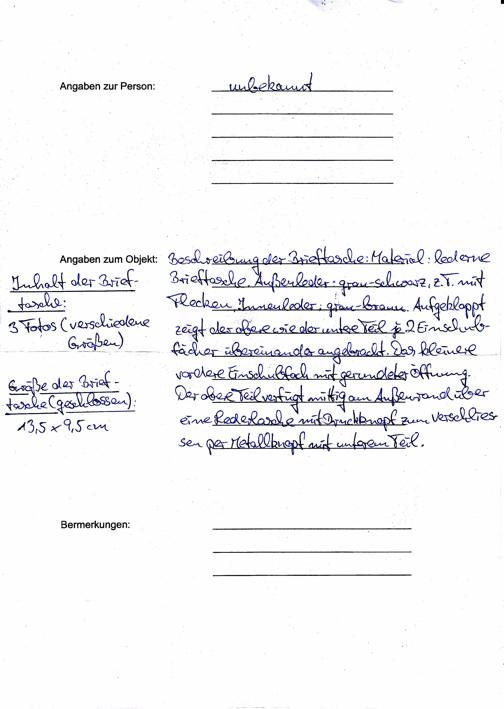 Angaben zur Person: unbekannt
Angaben zum Objekt: Beschreibung der Brieftasche: Material: lederne
Brieftasche. Außenleder: grau-schwarz, z.T. mit
Flecken. Innenleder: grau-braun. Aufgeklappt
zeigt der obere wie der untere Teil je 2 Einschub-
fächer übereinander angebracht. Das kleinere
vordere Einschubfach mit gerundeter Öffnung.
Der obere Teil verfügt mittig am Außenrand über
eine Lederlasche mit Druckknopf zum Verschlies-
sen per Metallknopf mit unterem Teil.
Inhalt der Brief-
tasche:
3 Fotos (verschiedene
Größen)
Größe der Brief-
tasche (geschlossen):
13,5 x 9,5 cm
Bermerkungen: